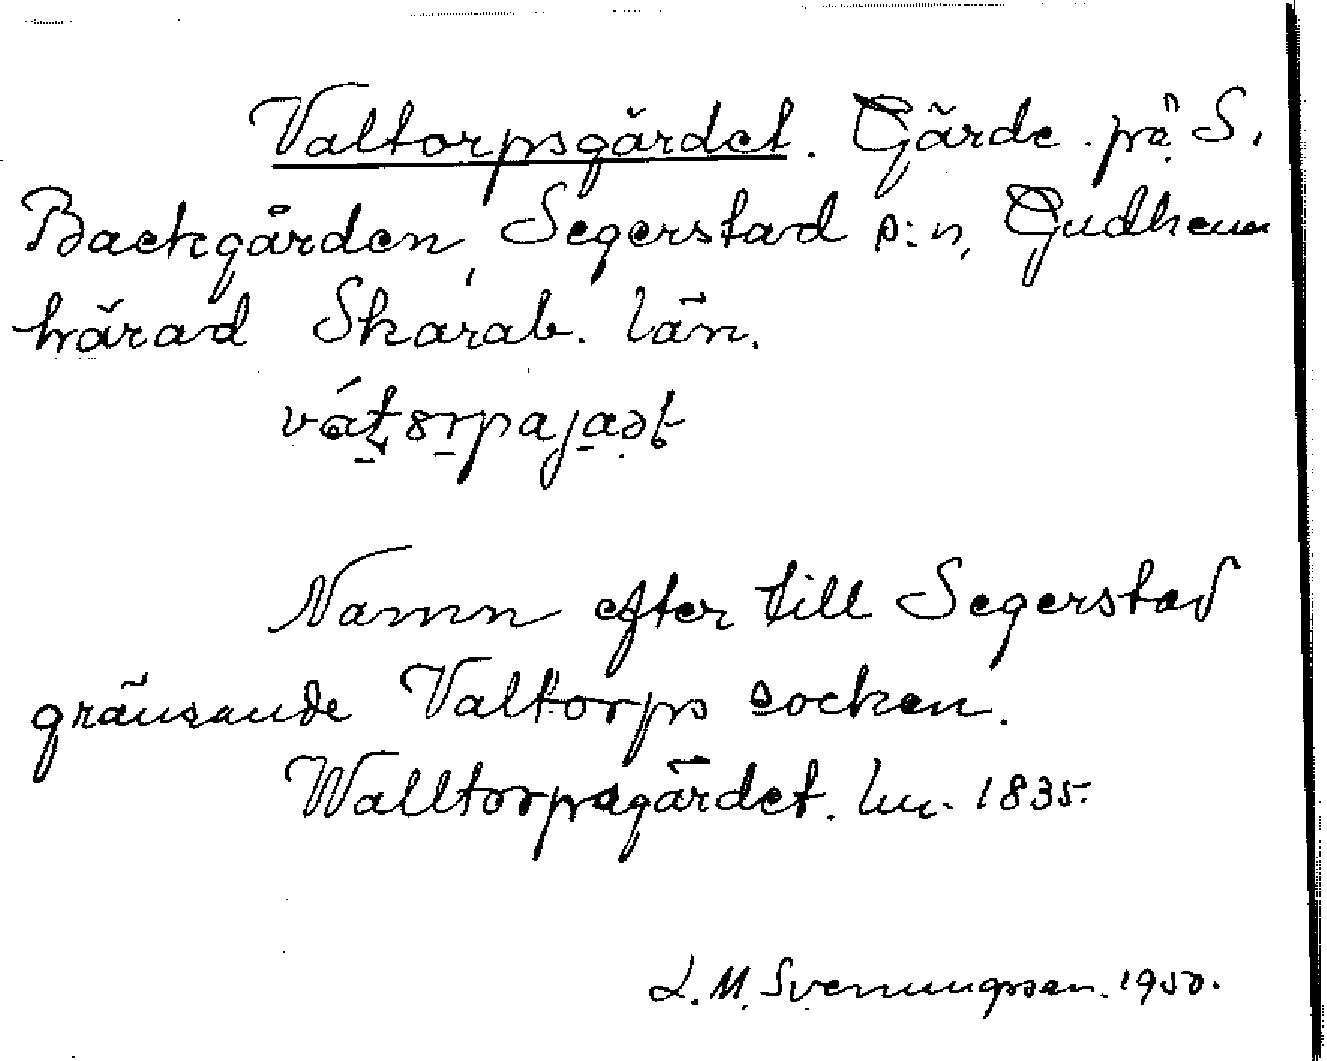 Valtorpsgärdet. Gärde på S.
Backgården, Segerstad s:n, Gudhem
härad Skarab. län.
Namn efter till Segerstad
gränsande Valtorps socken.
Walltorpsgärdet. Lm. 1835.
L. M. Svenungsson. 1950.